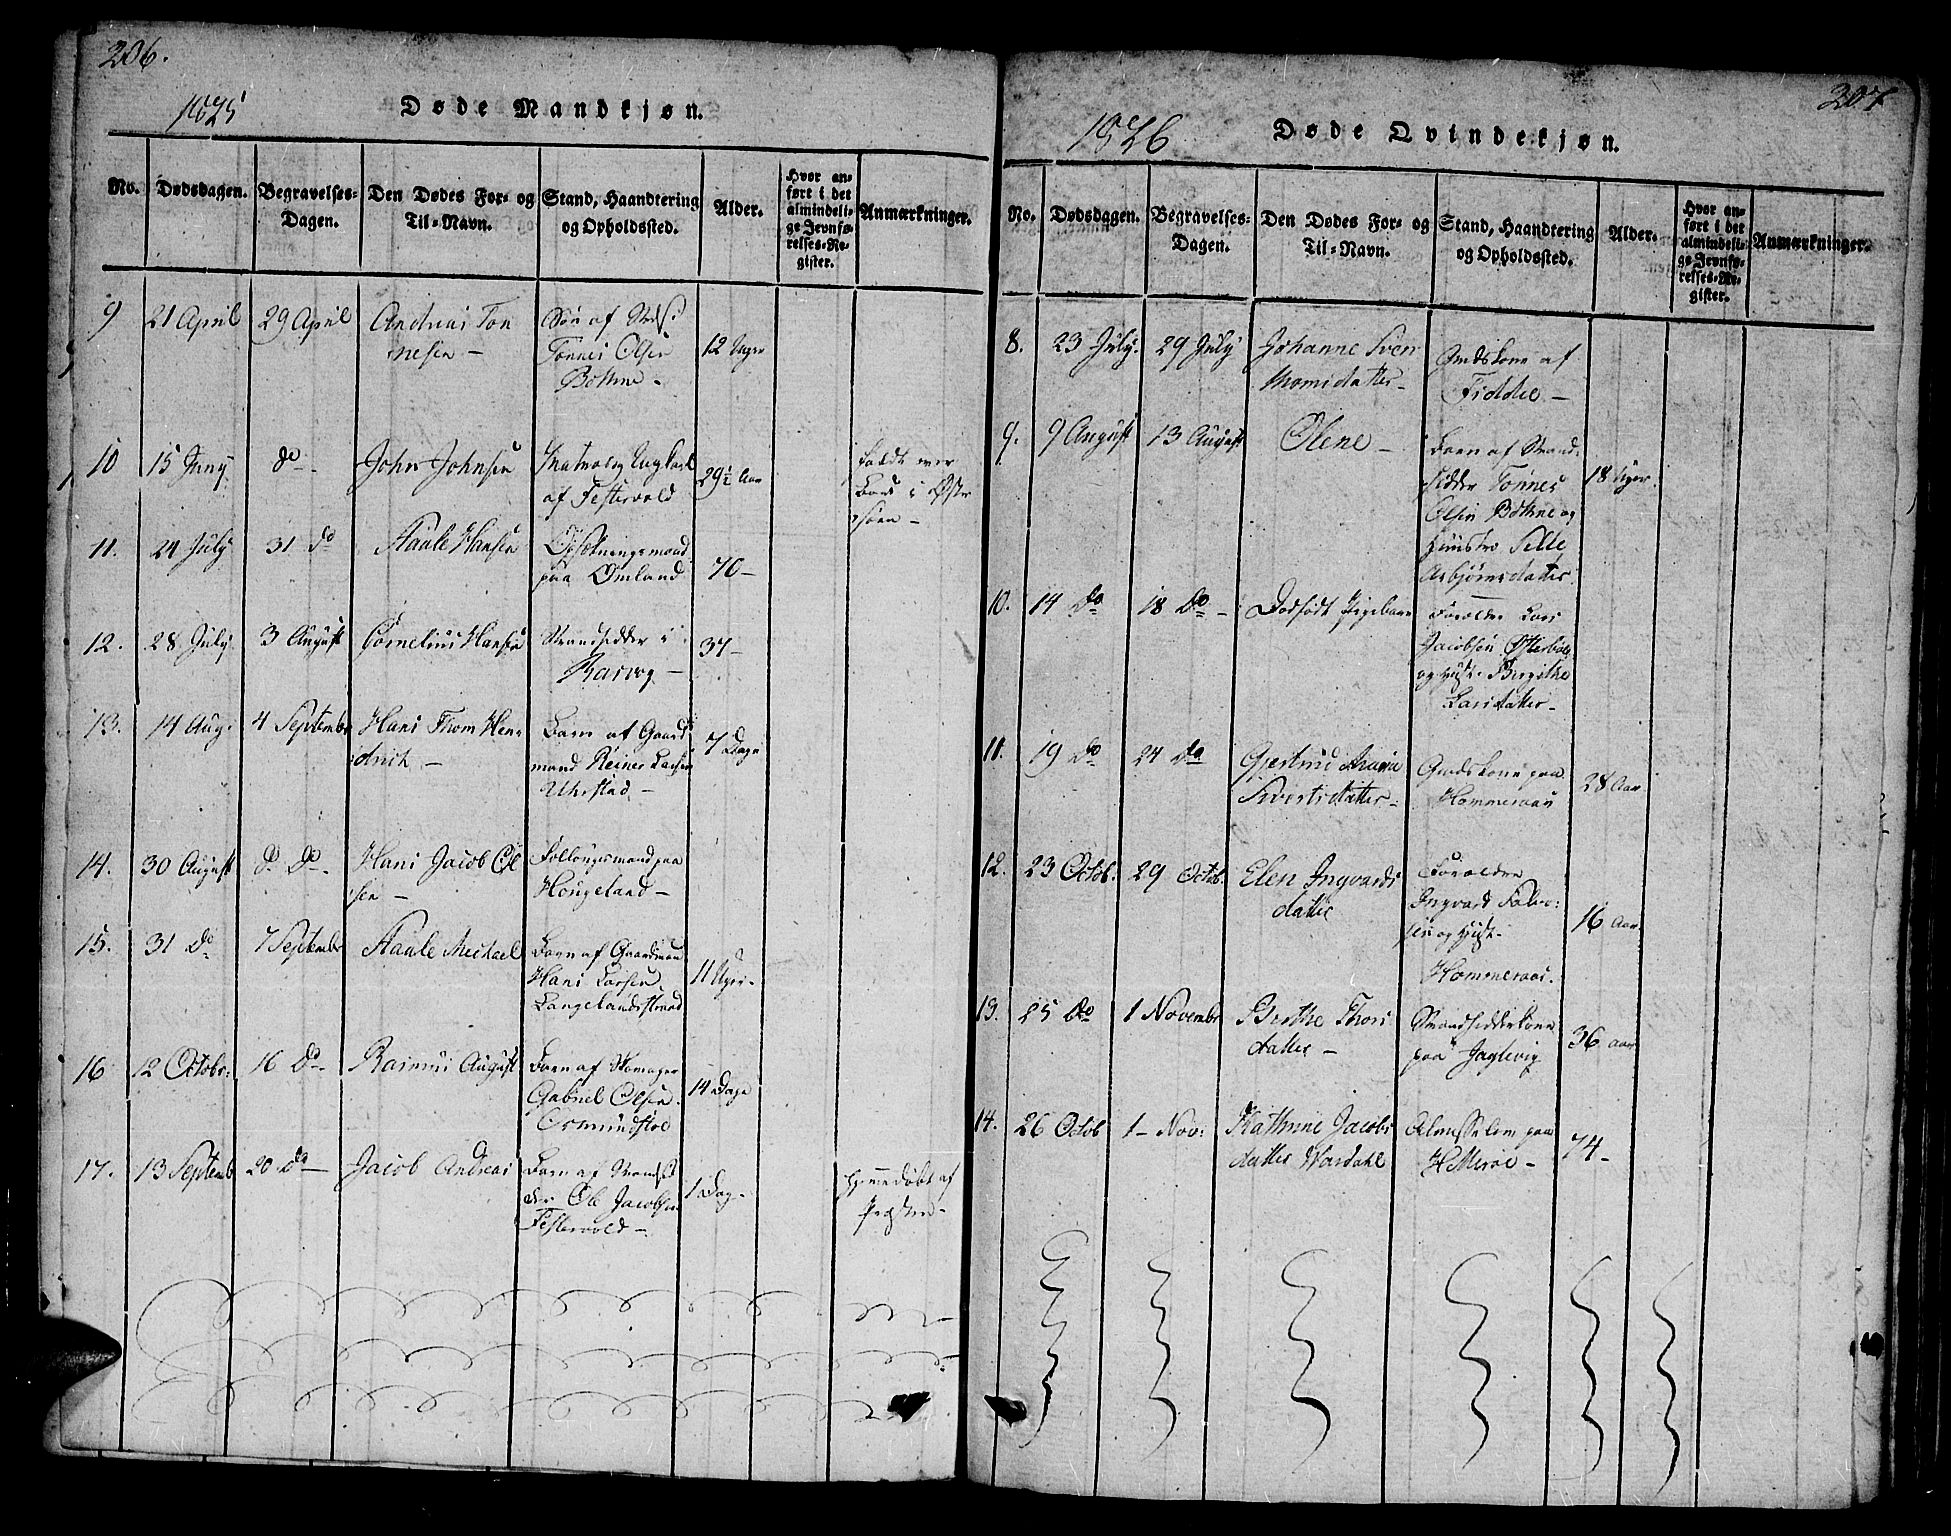 206.
1825
Døde Mandkjøn.
No.
Dødsdagen.
Begravelses-
Dagen.
Den Dødes For- og
Til-Navn.
Stand, Haandtering
og Opholdssted.
Alder.
Hvor an-
ført i det
almindeli-
ge Jevnfø-
relses-Re-
gister.
Anmærkninger.
9
21 April
29 April
Andreas Tøn
nesen -
Søn af
Tønnes Olsen
Bothne -
12 Uger
10
15 Juny
do
John Johnsen
af Festervold
29½ Aar
faldt over
Bord i Øster
søen -
11.
24 July
31 do
Staale Hansen
paa Omland
70-
12.
28 July
3 August
Cornelius Hansen
Strandsidder i
37-
13.
14 Aug.
4 Septembr
Hans Thom Hen
drich -
Barn af Gaard
mand Reiner Larsen
Uhrstad -
7 Dage
14.
30 August
do do
Hans Jacob Ol
sen -
Follougsmand paa
Hougeland -
15.
31 Do
7 Septembr
Staale Michael
Barn af Gaardman
Hans Larsen
Langelandsstrand
11 Uger-
16
12 Octobr:
16 Do
Rasmus August
Barn af Skomager
Gabriel Olsen
Osmundstøe
14 Dage
17.
13 Septemb
20 Do
Jacob Andreas
Barn af Strandsid
der Ole Jacobsen
Festervold -
1 Dag-
hjemmedøbt af
Præsten-
207
1826
Døde Qvindekjøn.
No.
Dødsdagen.
Begravelses-
Dagen.
Den Dødes For- og
Til-Navn.
Stand, Haandtering
og Opholdssted.
Alder.
Hvor an-
ført i det
almindeli-
ge Jevnfø-
relses-Re-
gister.
Anmærkninger.
8.
23 July.
29 July
Johanne Sven
Gmdskone af
Fidde -
9.
9 August
13 August
Olene -
Barn af Strand-
sidder Tønnes
Olsen Bothne og
Hustro Sille
Asbjørnsdatter
18 Uger.
10.
14 Do
18 Do -
Dødfødt Pigebarn
Forældre Lars
Jacobsen
og Hust. Birgithe
Larsdatter -
11.
19 Do
24 Do
Gjertrud Maria
Sivertsdatter -
Gmdskone paa
Hommeraas
28 Aar
12.
23 Octob.
29 Octob.
Elen Ingvards
datter
Forældre
Ingvard
sen og Hust.
Hommeraas.
16 Aar
13.
25 Do
1 Novembr
Birthe Thors
datter -
Strandsidderkone
paa Jaglevig
36 aar
14.
26 Octob
1- Nov:
Kathrine Jacobs
datter Wardahl
Almisselem paa
Hellerøe -
74-